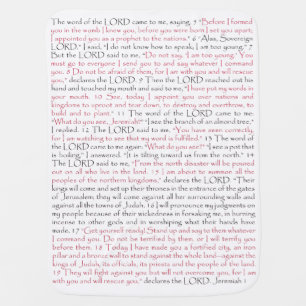 The word of the LORD came to me, saying, 5 "Before I formed
you in the womb I knew you, before you were born I set you apart;
I appointed you as a prophet to the nations." 6 "Alas, Sovereign
LORD," I said, "I do not know how to speak; I am too young." 7
But the LORD said to me, "Do not say, 'I am too young.' You
must go to everyone I send you to and say whatever I command
you. 8 Do not be afraid of them, for I am with you and will rescue
you," declares the LORD. 9 Then the LORD reached out his
hand and touched my mouth and said to me, "I have put my words in
your mouth. 10 See, today I appoint you over nations and
kingdoms to uproot and tear down, to destroy and overthrow, to
build and to plant." 11 The word of the LORD came to me:
"What do you see, Jeremiah?" "I see the branch of an almond tree,"
I replied. 12 The LORD said to me, "You have seen correctly,
for I am watching to see that my word is fulfilled." 13 The word of
the LORD came to me again: "What do you see?" "I see a pot
that is boiling," I answered. "It is tilting toward us from the north." 14
The LORD said to me, "From the north disaster will be poured
out on all who live in the land. 15 I am about to summon all the
peoples of the northern kingdoms," declares the LORD. "Their
kings will come and set up their thrones in the entrance of the gates
of Jerusalem; they will come against all her surrounding walls and
against all the towns of Judah. 16 I will pronounce my judgments on
my people because of their wickedness in forsaking me, in burning
incense to other gods and in worshiping what their hands have
made. 17 "Get yourself ready! Stand up and say to them whatever
I command you. Do not be terrified by them, or I will terrify you
before them. 18 Today I have made you a fortified city, an iron
pillar and a bronze wall to stand against the whole land—against the
kings of Judah, its officials, its priests and the people of the land.
19 They will fight against you but will not overcome you, for I am
with you and will rescue you," declares the LORD. Jeremiah 1